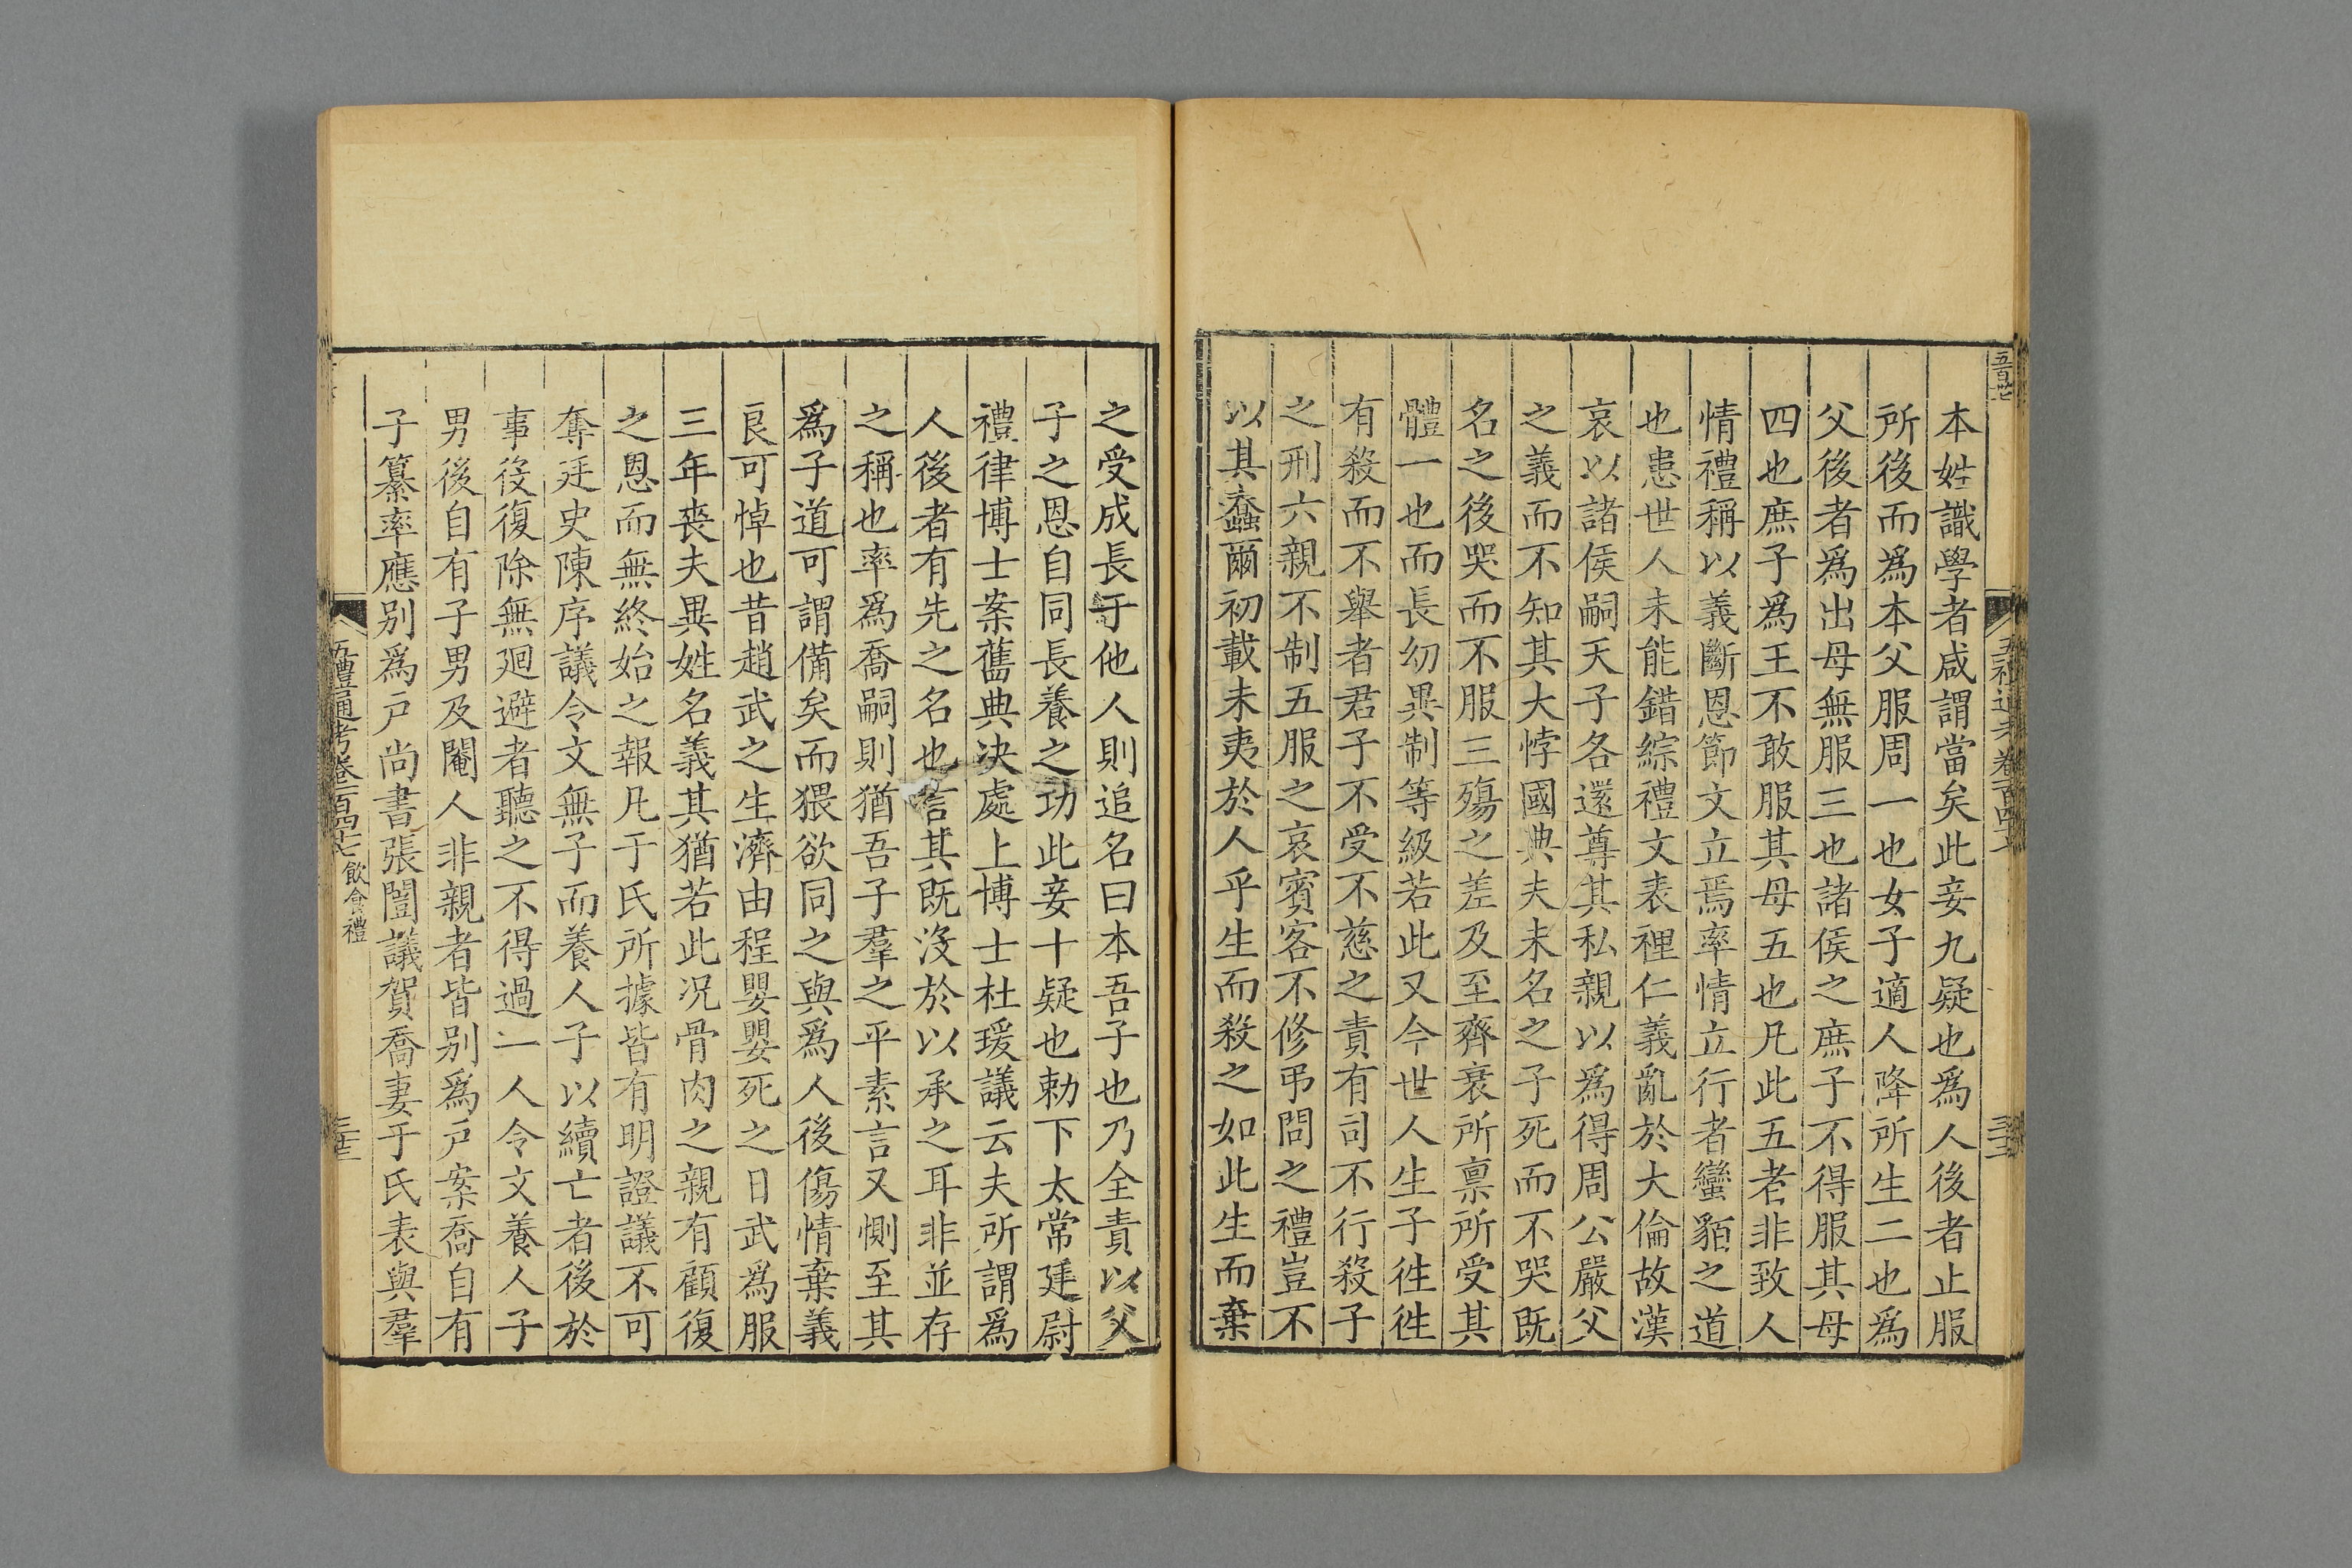 本姓識學者咸謂當矣此妾九疑也爲人後者止服
所後而爲本父服周一也女子適人降所生二也爲
父後者爲出母無服三也諸侯之庶子不得服其母
四也庶子爲王不敢服其母五也凡此五者非致人
情禮稱以義斷恩節文立焉率情立行者蠻貊之道
也患世人未能錯綜禮文表裡仁義亂於大倫故漢
哀以諸侯嗣天子各還尊其私親以爲得周公嚴父
之義而不知其大悖國典夫未名之子死而不哭既
名之後哭而不服三殤之差及至齊衰所禀所受其
體一也而長幼異制等級若此又今世人生子徃徃
有殺而不舉者君子不受不慈之責有司不行殺子
之刑六親不制五服之哀賓客不修弔問之禮豈不
以其蠢爾初載未夷於人乎生而殺之如此生而棄
之受成長于他人則追名曰本吾子也乃全責以父
子之恩自同長養之功此妾十疑也勅下太常廷尉
禮律博士案舊典决處上博士杜瑗議云夫所謂爲
人後者有先之名也言其既沒於以承之耳非並存
之稱也率爲喬嗣則猶吾子羣之平素言又惻至其
爲子道可謂備矣而猥欲同之與爲人後傷情棄義
良可悼也昔趙武之生濟由程嬰嬰死之日武爲服
三年喪夫異姓名義其猶若此况骨肉之親有顧復
之恩而無終始之報凡于氏所據皆有明證議不可
奪廷史陳序議令文無子而養人子以續亡者後於
事役復除無廻避者聽之不得過一人令文養人子
男後自有子男及閹人非親者皆别爲户案喬自有
子纂率應别爲户尚書張闓議賀喬妻于氏表與羣
五禮通考卷一百四十七 飲食禮